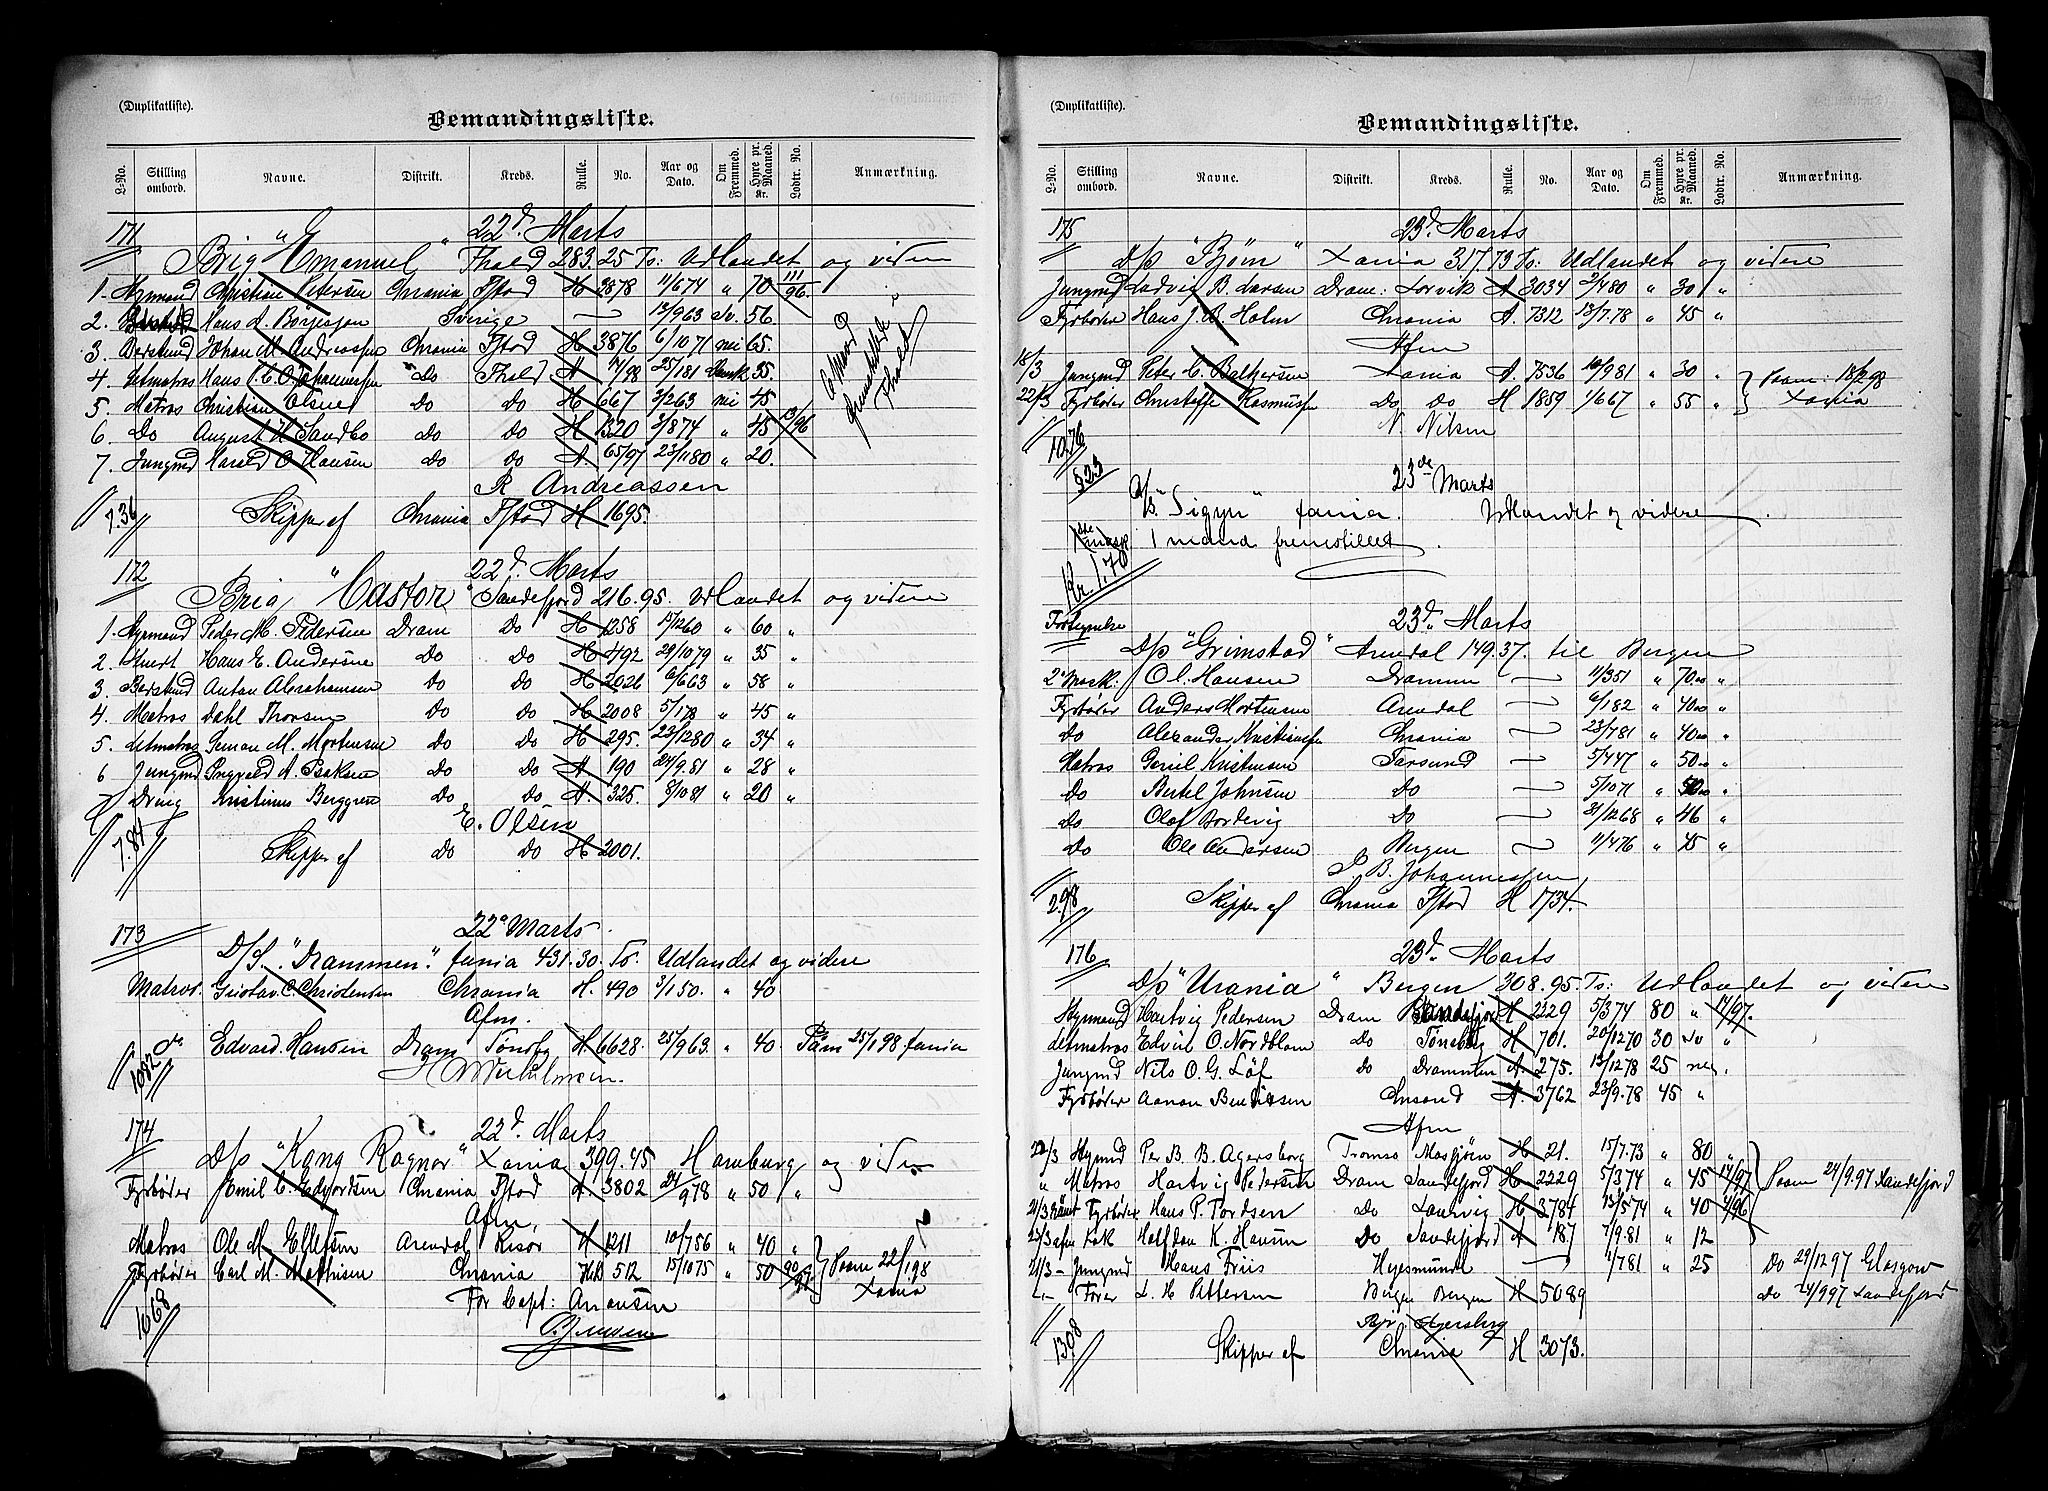 (Duplikatliste).
Bemandingsliste.
L-No. Stilling ombord. Navne. Distrikt. Kreds. Rulle. No. Aar og Dato. Om Fremmed. Hyre pr. Maaned. Kr. Lodtr. No. Anmærkning.
171 22d Marts
Brig "Emanuel" Fhald 283.25 Ts: Udlandet og videre
1. Christian Petersen Chrania Fstad H 2878 11/674 " 70 111/96
2. Hans A. Børjesson Sverige — 17/963 Sv. 56
3. Johan M. Andreassen Chrania Fstad H 3876 6/1071 nei 65.
4. Letmatros Hans C. O. Johannessen Do Fhald A 7/98 25/181 35
5. Matros Christian Olsen Do Do H 667 3/263 nei 45
6. Do August H. Sandbo Do Do H 1320 3/874 " 45 13/96
7. Jungmd Harald O. Hansen Do Do A. 65/97 23/1180 " 20.
6 Mand fremstillede i Fhald
R Andreassen
7.36 Skipper af Chrania Fstad H 1695.
172 22d Marts
Brig "Castor" Sandefjord 216.95. Udlandet og videre
1. Styrmand Peder M. Pedersen Dram Do H 1258 17/1260 " 60 "
2. Stuert Hans E. Andersen Do Do H 492 29/1079 " 35 "
3. Anton Abrahamsen Do Do H 2026 6/663 " 58 "
4. Matros Dahl Thorsen Do Do H 2008 5/178 " 45 "
5. Letmatros M. Mortensen Do Do H 295. 23/1280 " 34 "
6 Jungmd Ingvald A. Isaksen Do Do A 190 24/9.81 " 28 "
7 Dreng Kristinus Berggren Do Do A. 325. 8/1081 " 20 "
E. Olsen
7.84 Skipper af Do Do H 2001.
173 22d Marts
D/S. "Drammen." Xania 431.30. Ts. Udlandet og videre
Matros. Gustav C. Christensen Chrania H. 490 3/150. " 40
Afm.
do Edvard Hansen Dram Tønsbg H. 6628. 25/963. " 40 Paam 25/198 Xania
1082
174 22d. Marts
D/s "Kong Ragnar" Xania 399.45 Hamburg og videre
Fyrbøder Emil C. Edvardsen Chrania Fstad A 3802 24/978 " 50 "
Afm.
Matros Ole M. Ellefsen Arendal Risør H 1211 10/756 " 40 "
Fyrbøder Carl M. Mathisen Chrania 512 15/1075 " 50 90/97 Paam 22/198 Xania
For Capt: Anonsen
1068
(Duplikatliste).
Bemandingsliste.
L-No. Stilling ombord. Navne. Distrikt. Kreds. Rulle. No. Aar og Dato. Om Fremmed. Hyre pr. Maaned. Kr. Lodtr. No. Anmærkning.
175 23d. Marts
D/s "Bjørn" Xania 317.73 Ts: Udlandet og videre
Jungmd Ludvig B. Larsen Dram: Lorvik A 3034 2/480 " 30 "
Fyrbøder Hans J. B. Holm Chrania A. 7312 13/7.78 " 45 "
Afm
18/3 Jungmd Peter C. Baltzersen Xania A. 7536 10/981 " 30 "
22/3 Fyrbøder Christoffer Rasmussen Do Do H 1859 1/667 " 55 " Paam: 18/298 Xania
N. Nilsen
1076
§23 23de Marts
D/S "Sigyn" Xania. Udlandet og videre.
1 mand fremstillet.
Kr. 1.70
23d. Marts
D/s "Grimstad" Arendal 149.37. til Bergen
2d Mask: Ol. Hansen Drammen — 11/351 " 70.00 "
Fyrbøder Anders Mortensen Arendal — 6/182 " 40.00 "
Do Alexander Kristiansen Chrania — 23/781 " 40.00 "
Matros Kristensen Farsund — 5/447 " 50.00 "
Do Bertel Johnsen Do — 5/1071 " 50.00 "
Do Olaf Do — 31/1268 " 46 "
Do Ole Andersen Bergen — 11/476 " 45 "
B. Johannessen
2.98 Skipper af Chrania Fstad H 1734.
176 23d. Marts
D/s "Urania" Bergen 308.95. Ts: Udlandet og videre
Styrmand Hartvig Pedersen Dram Sandefjord H 2229 5/374 80 " 14/97.
Letmatros Edvin O. Nordblom Do Tønsberg H 701. 20/1270 30 Sv "
Jungmd Nils O. G. Løf Do Drammen A 275. 13/1278 25 nei.
Fyrbøder Aanon Bendixsen Chrsand A. 3762 23/9.78 45 "
Afm
20/3 Styrmd Per B. B. Agersborg Tromsø Mosjøen H 21. 15/7.73 " 80 "
" Matros Hartvig Pedersen Dram Sandefjord H 2229 5/374 " 45 14/97 Paam 24/9.97 Sandefjord
21/3 Fyrbøder Hans P. Tordsen Do Laurvig H 3784 13/574 " 40 4/96
23/3 afm Kok Halfdan K. Hansen Do Sandefjord A 187 7/9.81 " 12
21/3 - Jungmd Hans Friis — 1/781 " 25 Do 29/1297 Glasgow
Fører L. H. Pettersen Bergen Bergen H 5089 Do 24/997 Sandefjord
Agersborg
1308 Skipper af Chrania H 3073.